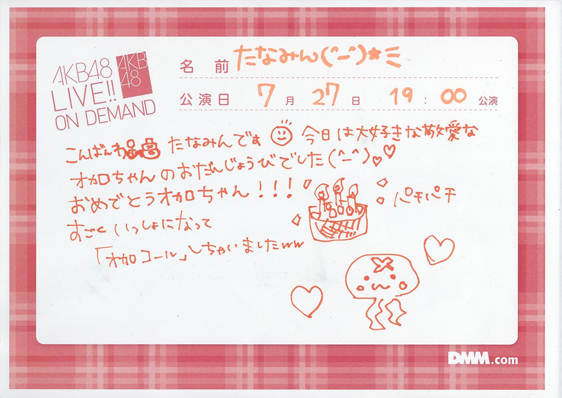 AKB48
LIVE!!
ON DEMAND
AKB
48
名 前 たなみん(^-^)★ミ
公演日 7月 27日 19:00 公演
こんばんわ たなみんです 今日は大好きな敬愛な
オカロちゃんのおたんじょうびでした(^-^)♡♡
おめでとうオカロちゃん!!!
すごくいっしょになって
パチパチ
「オカロコール」しちゃいましたww
DMM.com